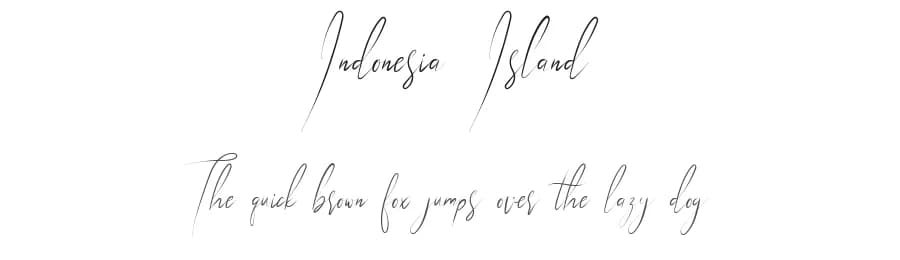 Indonesia Island
The quick brown fox jumps over the lazy dog